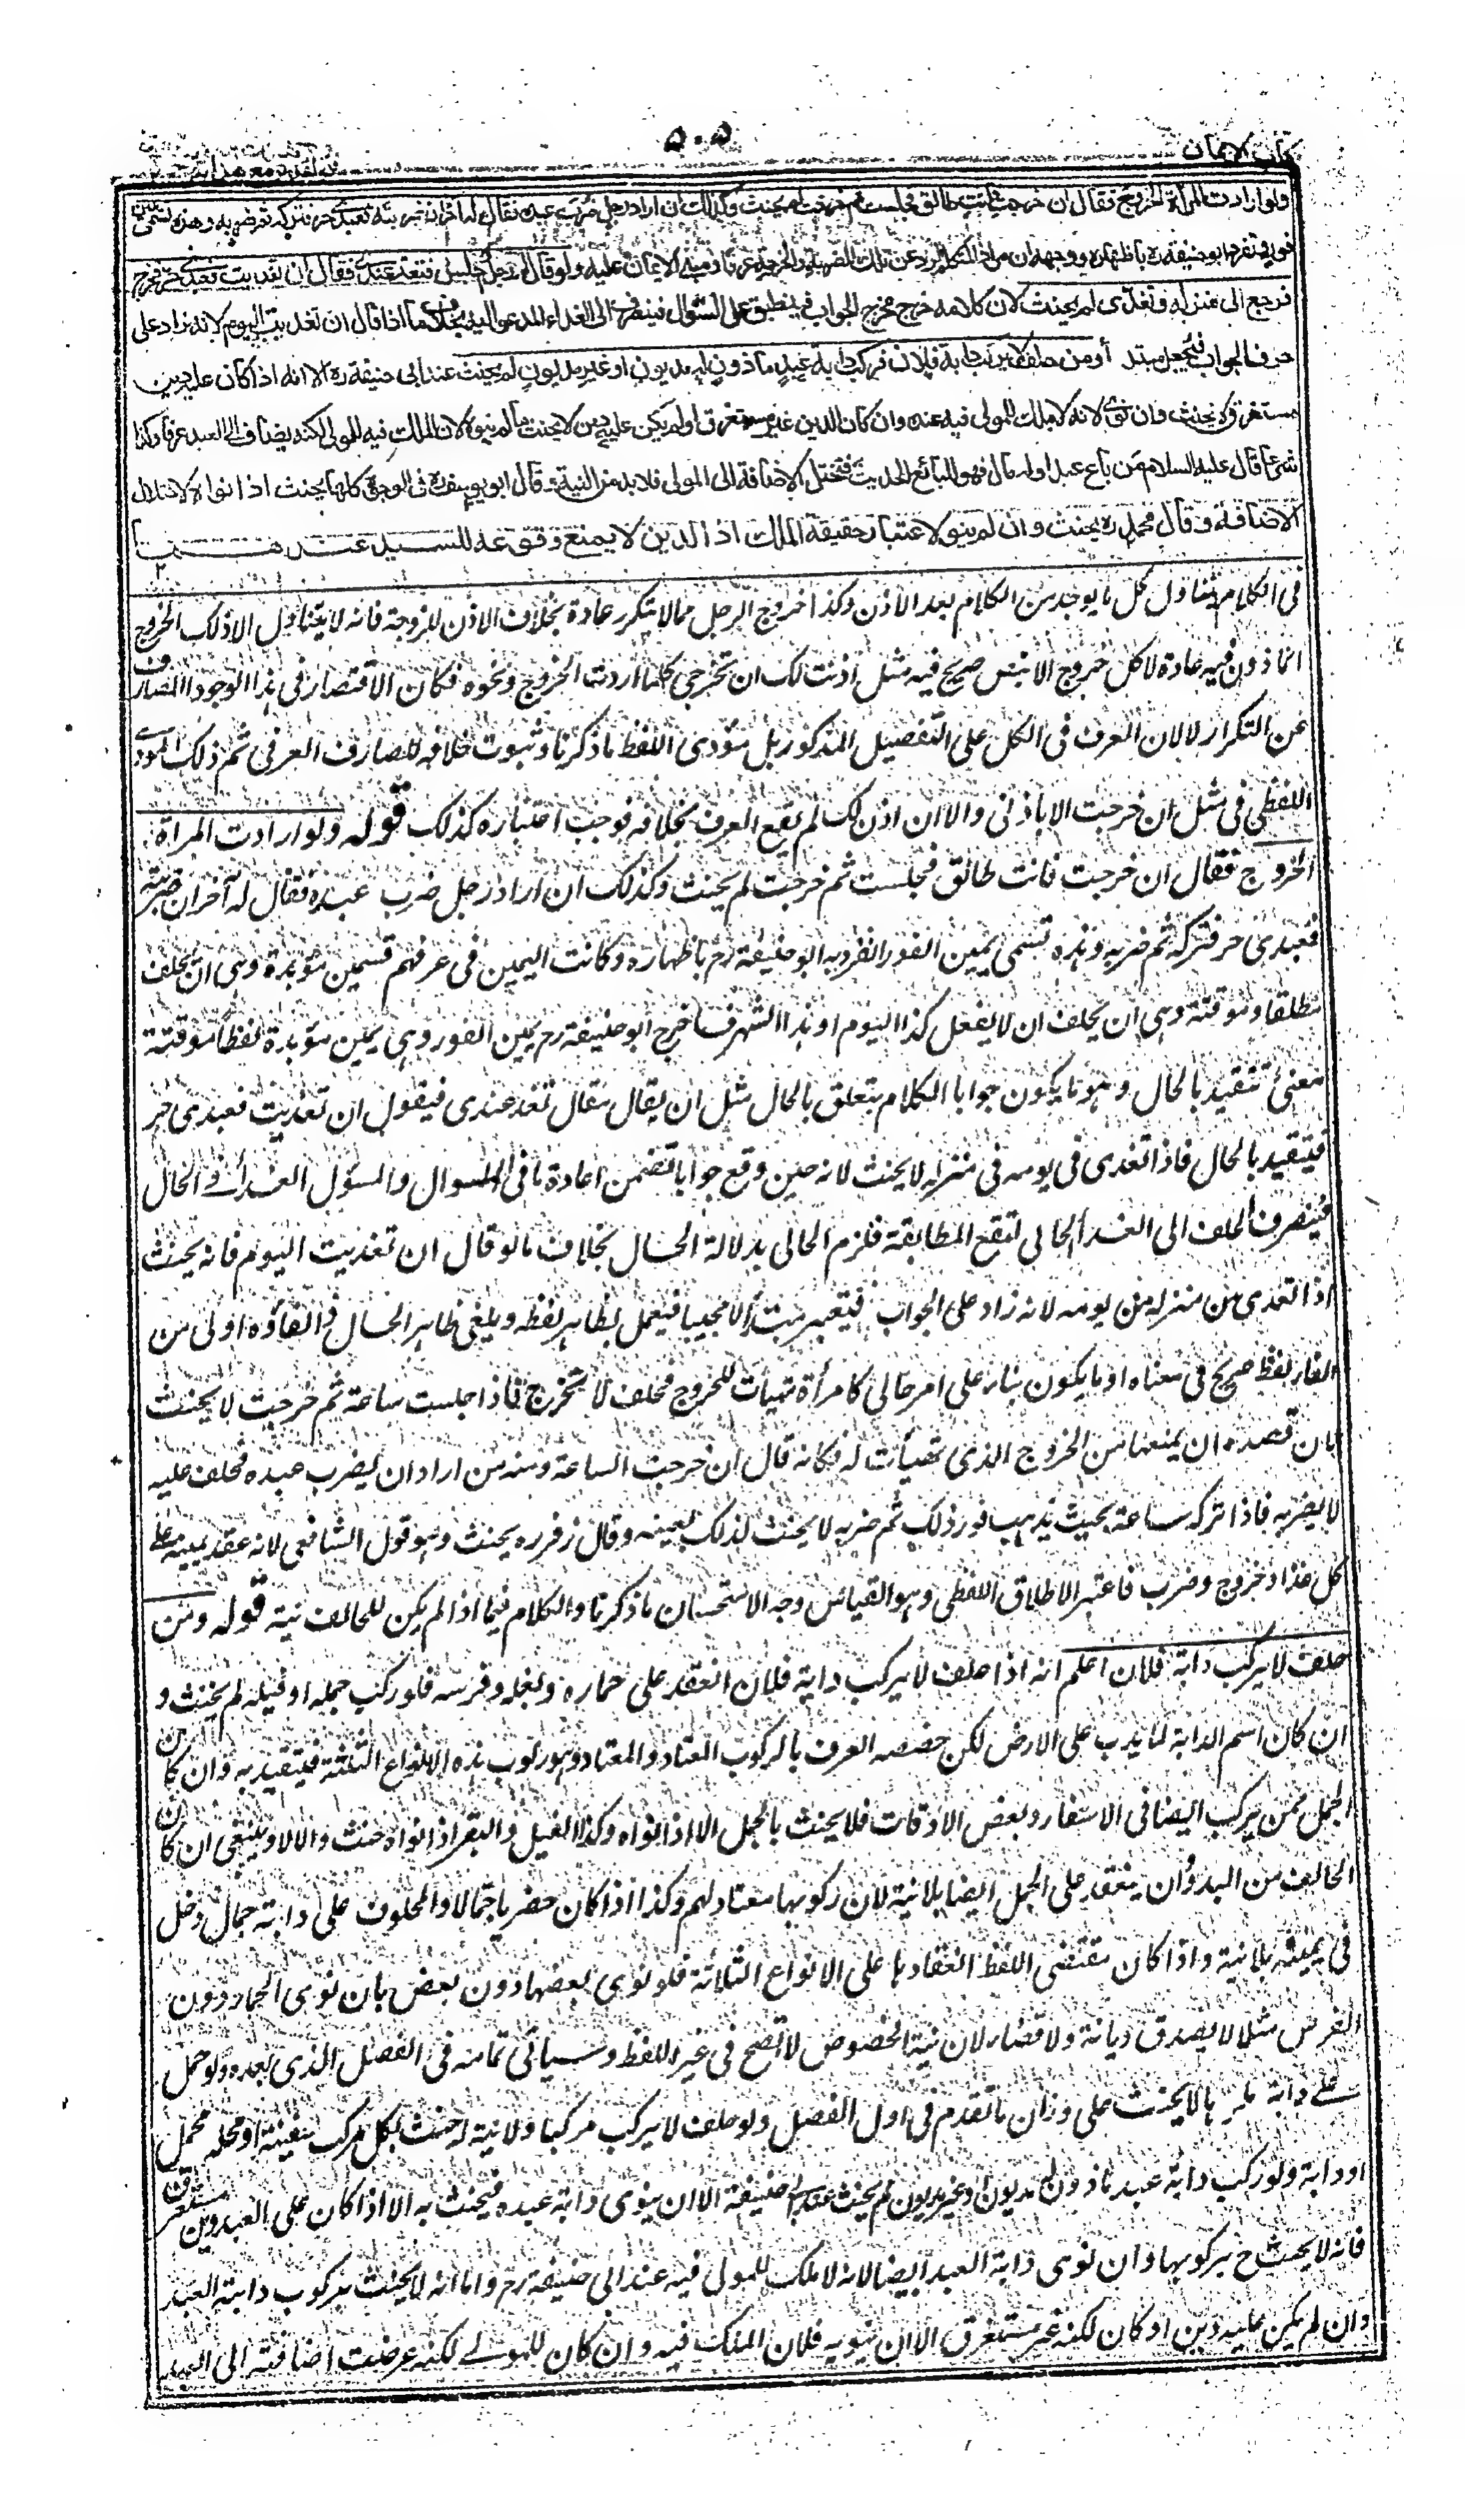 كتاب الايمان
٥٠٥
فتح القدير مع هداية جلد ٢
ولو ارادت المرأة الخروج فقال ان خرجت فانت طالق فجلست ثم خرجت لم يحنث وكذلك ان اراد رجل ضرب عبده فقال له آخر ان ضربته فعبدي حر فتركه ثم ضربه وهذه تسمى يمين
فور وتفرد ابو حنيفة ره باظهاره ووجهه ان مراد المتكلم الرد عن تلك الضربة والخرجة عرفا ومبنى الايمان عليه ولو قال له رجل اجلس فتغد عندي فقال ان تغديت فعبدي حر فخرج
فرجع الى منزله وتغدى لم يحنث لان كلامه خرج مخرج الجواب فينطبق على السؤال فينصرف الى الغداء المدعو اليه بخلاف ما اذا قال ان تغديت اليوم لانه زاد على
حرف الجواب فيجعل مبتدأ ومن حلف لا يركب دابة فلان فركب دابة عبد ماذون له مديون او غير مديون لم يحنث عند ابي حنيفة ره الا انه اذا كان عليه دين
مستغرق لا يحنث وان نوى لانه لا ملك للمولى فيه عنده وان كان الدين غير مستغرق او لم يكن عليه دين لا يحنث ما لم ينوه لان الملك فيه للمولى لكنه يضاف الى العبد عرفا وكذا
شرعا قال عليه السلام من باع عبدا وله مال فهو للبائع الحديث فتختل الاضافة الى المولى فلا بد من النية وقال ابو يوسف ره في الوجوه كلها يحنث اذا نواه لاختلال
الاضافة وقال محمد ره يحنث وان لم ينو لاعتبار حقيقة الملك اذ الدين لا يمنع وقوعه للسيد عندهما
في الكلام يتناول كل ما يوجد من الكلام بعد الاذن وكذا خروج الرجل مما لا يتكرر عادة بخلاف الاذن للزوجة فانه لا يتناول الا ذلك الخروج
الماذون فيه عادة لا كل خروج الا بنص صريح فيه مثل اذنت لك ان تخرجي كلما اردت الخروج ونحوه فكان الاقتصار في هذا الوجود الصارف
عن التكرار لا لان العرف في الكل على التفصيل المذكور بل مؤدى اللفظ ما ذكرنا وثبوت خلافه للصارف العرفي ثم ذلك المؤدى
اللفظي في مثل ان خرجت الا باذني والا ان اذن لك لم يقع العرف بخلافه فوجب اعتباره كذلك قوله ولو ارادت المرأة
الخروج فقال ان خرجت فانت طالق فجلست ثم خرجت لم يحنث وكذلك ان اراد رجل ضرب عبده فقال له آخر ان ضربته
فعبدي حر فتركه ثم ضربه وهذه تسمى يمين الفور انفرد به ابو حنيفة رح باظهاره وكانت اليمين في عرفهم قسمين مؤبدة وهي ان يحلف
مطلقا وموقتة وهي ان يحلف ان لا يفعل كذا اليوم او هذا الشهر فاخرج ابو حنيفة رح يمين الفور وهي يمين مؤبدة لفظا موقتة
معنى تتقيد بالحال وهو ما يكون جوابا لكلام يتعلق بالحال مثل ان يقال تعال تغد عندي فيقول ان تغديت فعبدي حر
فيتقيد بالحال فاذا تغدى في يومه في منزله لا يحنث لانه حين وقع جوابا تضمن اعادة ما في السؤال والمسؤل الغداء في الحال
فينصرف الحلف الى الغداء الحالي لتقع المطابقة فلزم الحالي بدلالة الحال بخلاف ما لو قال ان تغديت اليوم فانه يحنث
اذا تغدى من منزله من يومه لانه زاد على الجواب فيعتبر مبتدأ لا مجيبا فيعمل بظاهر لفظه ويلغى ظاهر الحال فالغاؤه اولى من
الغاء لفظ صريح في معناه او ما يكون بناء على امر حالي كامرأة تهيأت للخروج فحلف لا تخرج فاذا جلست ساعة ثم خرجت لا يحنث
لان قصده ان يمنعها من الخروج الذي تهيأت له فكانه قال ان خرجت الساعة ومنه من اراد ان يضرب عبده فحلف عليه
لا يضربه فاذا تركه ساعة بحيث يذهب فور ذلك ثم ضربه لا يحنث لذلك بعينه وقال زفر ره يحنث وهو قول الشافعي لانه عقد يمينه على
كل غداء وخروج وضرب فاعتبر الاطلاق اللفظي وهو القياس وجه الاستحسان ما ذكرنا والكلام فيما اذا لم يكن للحالف نية قوله ومن
حلف لا يركب دابة فلان اعلم انه اذا حلف لا يركب دابة فلان انعقد على حماره وبغله وفرسه فلو ركب جمله او فيله لم يحنث و
ان كان اسم الدابة لما يدب على الارض لكن خصصه العرف بالركوب المعتاد والمعتاد وهو ركوب هذه الانواع الثلثة فيتقيد به وان كان
الجمل ممن يركب ايضا في الاسفار وبعض الاوقات فلا يحنث بالجمل الا اذا نواه وكذا الفيل والبقر اذا نواه حنث والا لا وينبغي ان كان
الحالف من البدو ان ينعقد على الجمل ايضا بلا نية لان ركوبها معتاد لهم وكذا اذا كان حضريا جمالا والمحلوف على دابته جمال دخل
في يمينه بلا نية واذا كان مقتضى اللفظ انعقادها على الانواع الثلاثة فلو نوى بعضها دون بعض بان نوى الحمار دون
الفرس مثلا لا يصدق ديانة ولا قضاء لان نية الخصوص لا تصح في غير اللفظ وسياتي تمامه في الفصل الذي بعده ولو حمل
على دابة مكرها لا يحنث على وزان ما تقدم في اول الفصل ولو حلف لا يركب مركبا ولا نية له حنث بكل مركب سفينة او محمل
او دابة ولو ركب دابة عبد ماذون له مديون او غير مديون لم يحنث عند ابي حنيفة الا ان ينوي دابة عبده فيحنث به الا اذا كان على العبد دين مستغرق
فانه لا يحنث ح بركوبها وان نوى دابة العبد ايضا لانه لا ملك للمولى فيه عند ابي حنيفة رح واما انه لا يحنث بركوب دابة العبد
وان لم يكن عليه دين او كان لكنه غير مستغرق الا ان ينويه فلان الملك فيه وان كان للمولى لكنه عرضت اضافته الى العبد